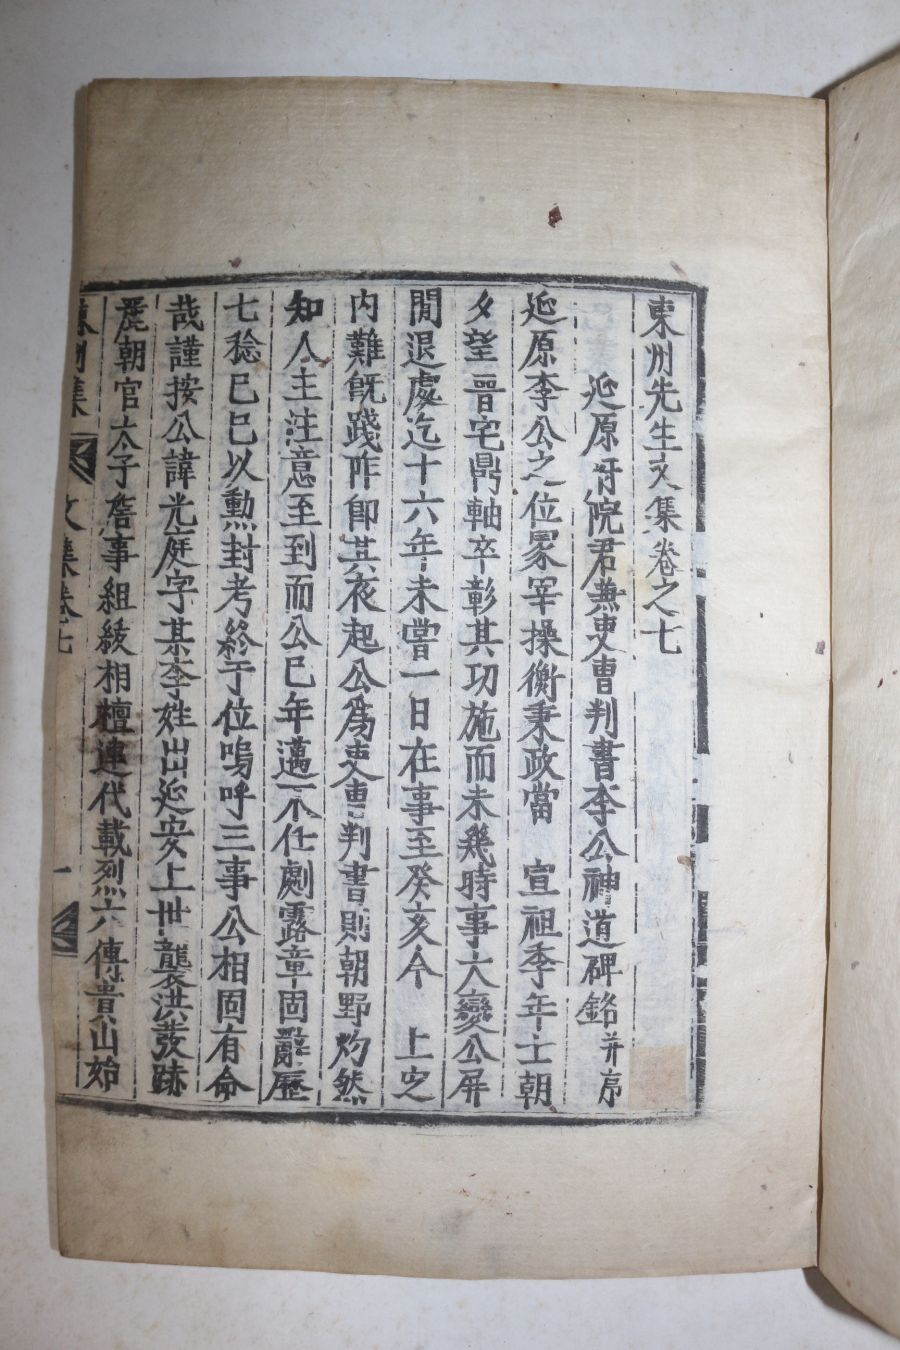 東洲先生文集卷之七
延原府院君兼吏曹判書李公神道碑銘 幷序
延原李公之位冢宰操衡秉政當 宣祖季年士朝
夕望晉宅鼎軸卒彰其功施而未幾時事大變公屏
閒退處迄十六年未嘗一日在事至癸亥今 上㝎
內難旣踐阼卽其夜起公爲吏曹判書則朝野灼然
知人主注意至到而公已年邁不任劇露章固辭歷
七稔己巳以勳封考終于位嗚呼三事公相固有命
哉謹按公諱光庭字某李姓出延安上世襲洪發跡
麗朝官太子詹事組紱相襢連代載烈六傳貴山始
東洲集 文集卷七 一